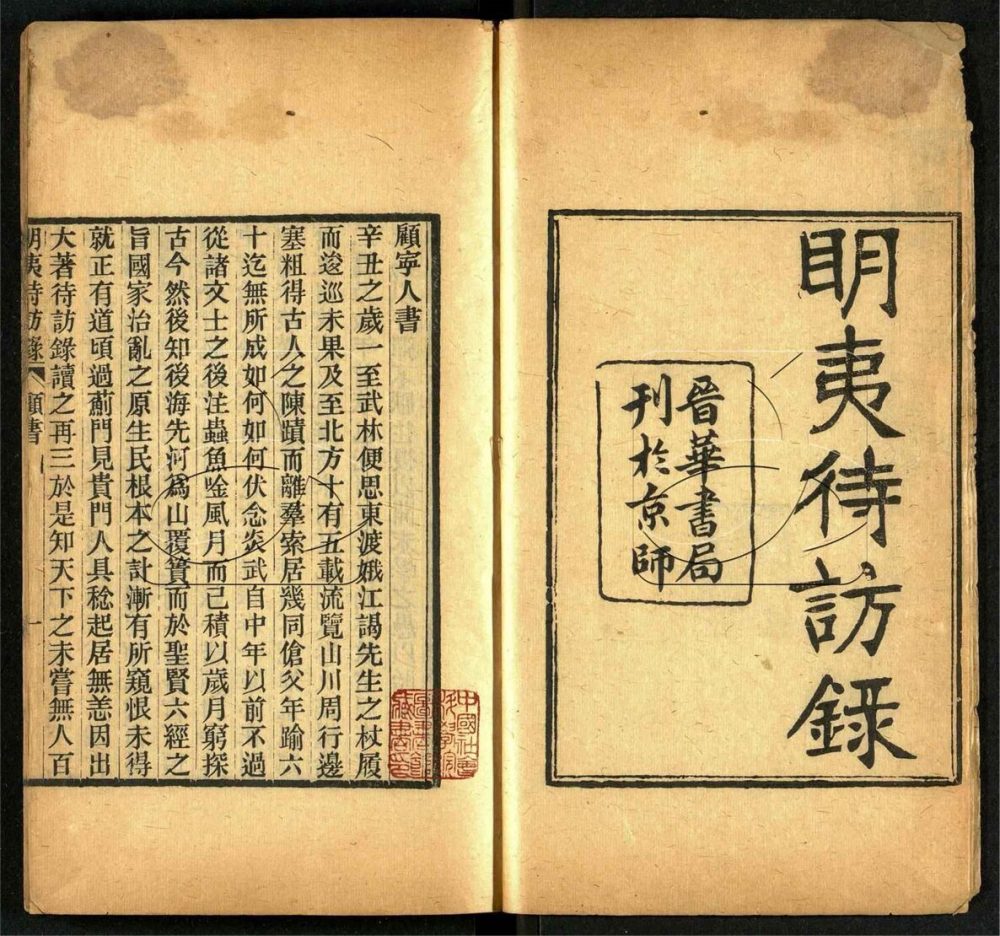 明夷待訪錄
晉華書局
刊於京師
顧寧人書
辛丑之歲一至武林便思東渡娥江謁先生之杖履
而逡巡未果及至北方十有五載流覽山川周行邊
塞粗得古人之陳蹟而離羣索居幾同傖父年踰六
十迄無所成如何如何伏念炎武自中年以前不過
從諸文士之後注蟲魚唫風月而已積以歲月窮探
古今然後知後海先河爲山覆簣而於聖賢六經之
旨國家治亂之原生民根本之計漸有所窺恨未得
就正有道頃過薊門見貴門人具稔起居無恙因出
大著待訪錄讀之再三於是知天下之未嘗無人百
明夷待訪錄 顧書 一